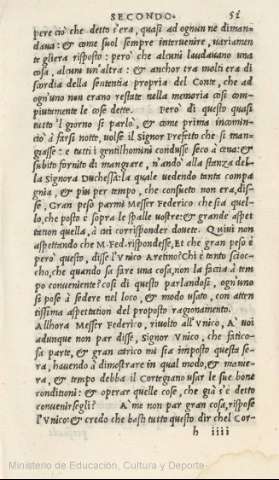 SECONDO. 52
pere ciò che detto s'era, quasi ad ognun ne diman-
daua: & come suol sempre interuenire, uariamen
te gliera risposto: però che alcuni laudauano una
cosa, alcuni un'altra: & anchor tra molti era di
scordia della sententia propria del Conte, che ad
ogn'uno non erano restate nella memoria cosi com-
piutamente le cose dette. Però di questo quasi
tutto'l giorno si parlò, & come prima incomin-
ciò à farsi notte, uolse il Signor Prefetto che si man-
giasse: e tutti i gentilhomini condusse seco à cena: &
subito fornito di mangiare, n'andò alla stanza del-
la Signora Duchessa: la quale uedendo tanta compa
gnia, & piu per tempo, che consueto non era, dis-
se, Gran peso parmi Messer Federico che sia quel-
lo, che posto è sopra le spalle uostre: & grande aspet
tation quella, à cui corrisponder douete. Quiui non
aspettando che M. Fed. rispondesse, Et che gran peso è
però questo, disse l'Unico Aretino? Chi è tanto scioc-
cho, che quando sa fare una cosa, non la faccia à tem
po conueniente? cosi di questo parlandosi, ogn'uno
si pose à sedere nel loco, & modo usato, con atten
tissima aspettation del proposto ragionamento.
Allhora Messer Federico, riuolto all'Vnico, A' uoi
adunque non par disse, Signor Vnico, che fatico-
sa parte, & gran carico mi sia imposto questa se-
ra, hauendo à dimostrare in qual modo, & manie-
ra, & tempo debba il Cortegiano usar le sue bone
conditioni: & operar quelle cose, che già s'è detto
conuenirsegli? A' me non par gran cosa, rispose
l'Vnico: & credo che basti tutto questo dir chel Cor-
h iiii
Ministerio de Educación, Cultura y Deporte